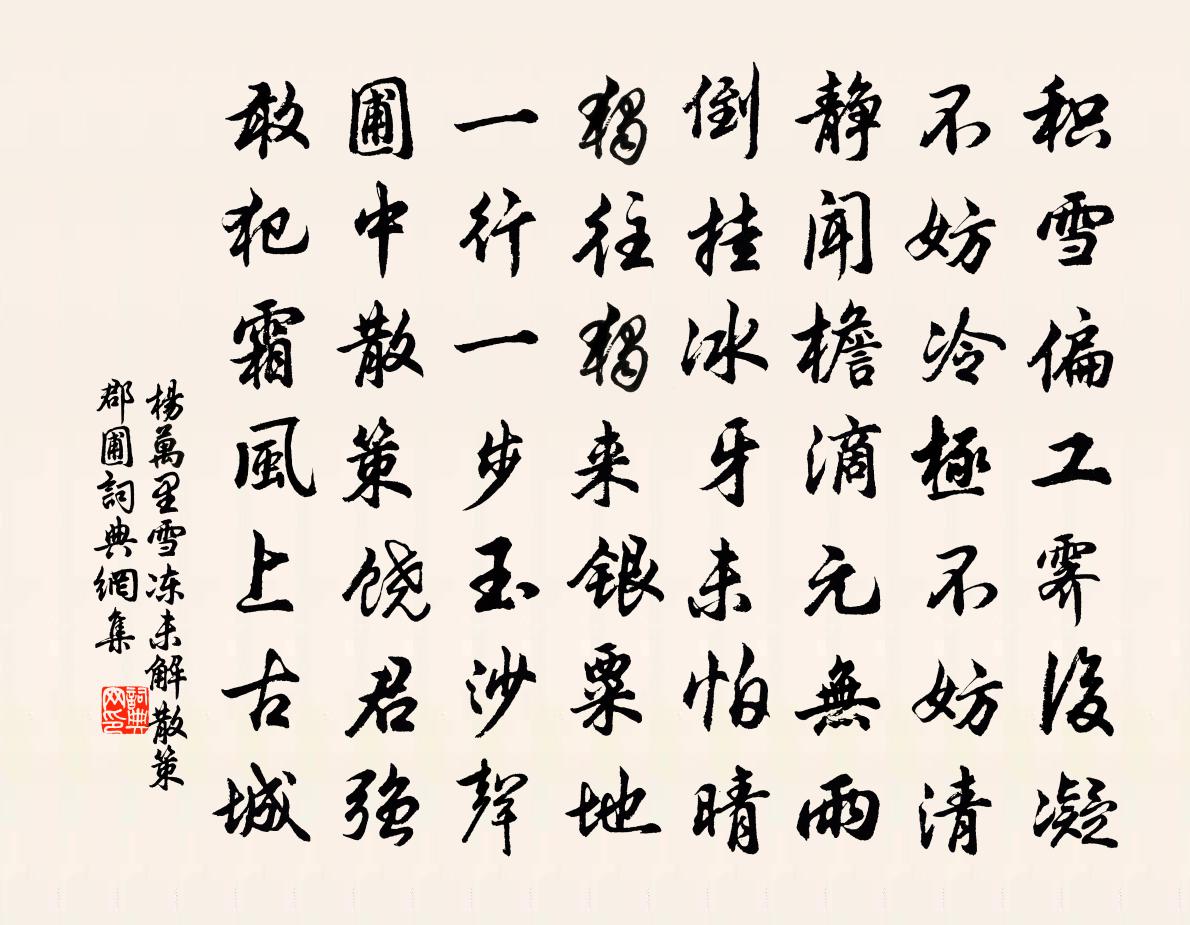 积雪偏工霁後凝
不妨冷極不妨清
静闻檐滴元無雨
倒挂冰牙未怕晴
独往独来銀粟地
一行一步玉沙聲
圃中散策饶君强
敢犯霜風上古城
楊萬里雪冻未解散策
郡圃詞典網集
詞典
网印